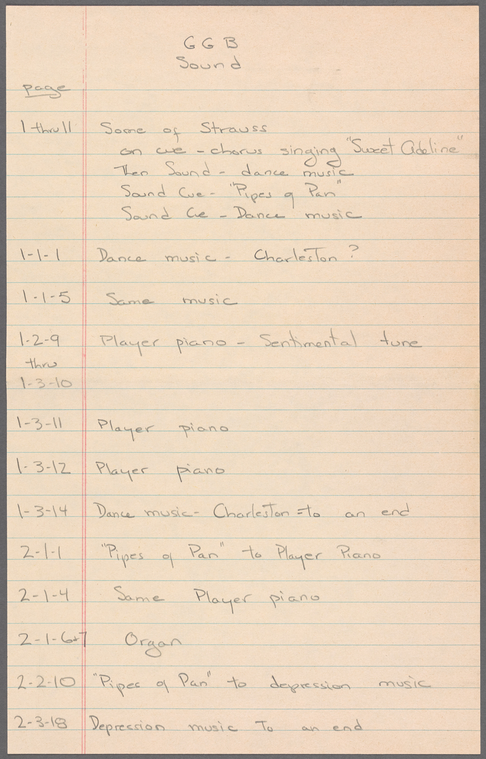 GGB
Sound
page
1 thru 11 Some of Strauss
on cue - chorus singing "Sweet Adeline"
Then Sound - dance music
Sound Cue - "Pipes of Pan"
Sound Ce - Dance music
1-1-1 Dance music - Charleston?
1-1-5 Same music
1-2-9 Player piano - Sentimental tune
thru
1-3-10
1-3-11 Player piano
1-3-12 Player piano
1-3-14 Dance music - Charleston = to an end
2-1-1 "Pipes of Pan" to Player Piano
2-1-4 Same Player piano
2-1-6+7 Organ
2-2-10 "Pipes of Pan" to depression music
2-3-18 Depression music To an end